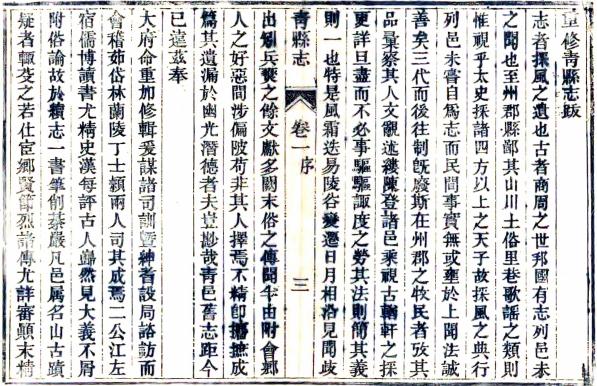 重修青縣志跋
志者採風之遺也古者商周之世邦國有志列邑未
之聞也至州郡縣鄙其山川土俗里巷歌謠之類則
惟視乎太史採諸四方以上之天子故採風之典行
列邑未嘗自爲志而民間事實無或壅於上聞法誠
善矣三代而後往制旣廢斯在州郡之牧民者攷其
品彙察其人文觀述縷陳登諸邑乘視古輶軒之採
更詳且盡而不必事驅驅諏度之勞其法則簡其義
則一也特是風霜迭易陵谷變遷日月相沿見聞歧
青縣志
卷一序
三
出矧兵燹之餘文獻多闕末俗之傳聞半由附會鄉
人之好惡間涉偏陂苟非其人擇焉不精卽擴摭成
篇其遺漏於幽光潛德者夫豈尠哉青邑舊志距今
已遠茲奉
大府命重加修輯爰謀諸司訓曁紳耆設局諮訪而
會稽茹岱林蘭陵丁士穎兩人司其成焉二公江左
宿儒博讀書尤精史漢每評古人巋然見大義不屑
附俗論故於續志一書筆創綦嚴凡邑属名山古蹟
疑者輒芟之若仕宦鄉賢節烈諸傳尤詳審顚末精